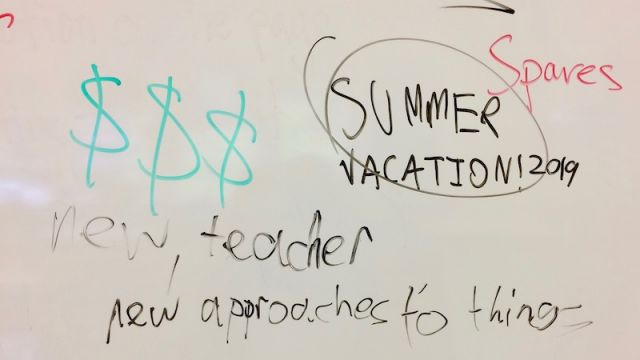 Spares
$$$
SUMMER
VACATION! 2019
new teacher
new approaches to things